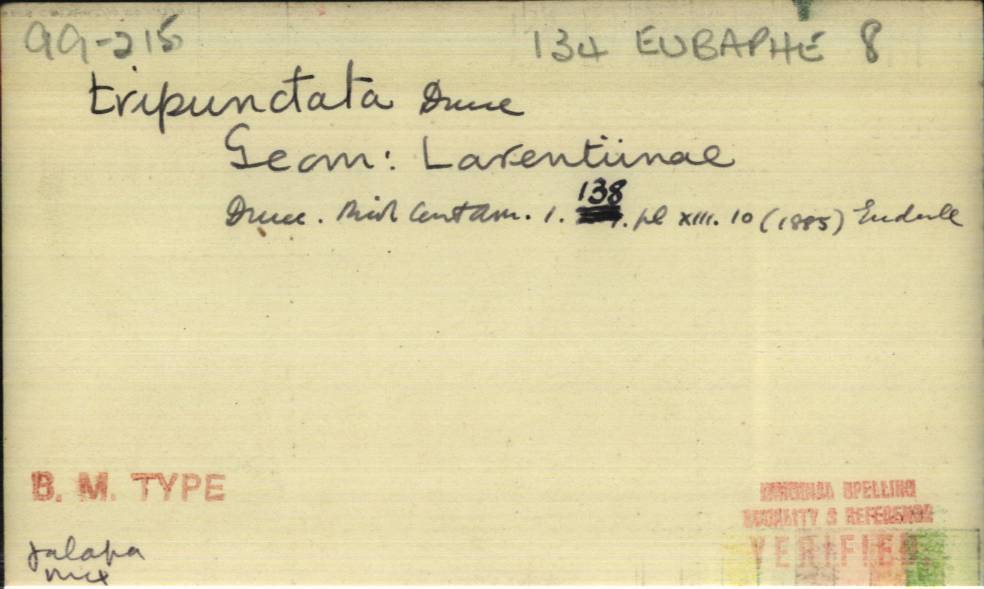 99-215 134 EUBAPHE 8
tripunctata Druce
Geom: Larentiinae
Druce. Biol Cent Am. 1. 138. pl XIII. 10 (1885) Eudule
B. M. TYPE
SPELLING
LOCALITY & REFERENCE
VERIFIED
Jalapa
Mex